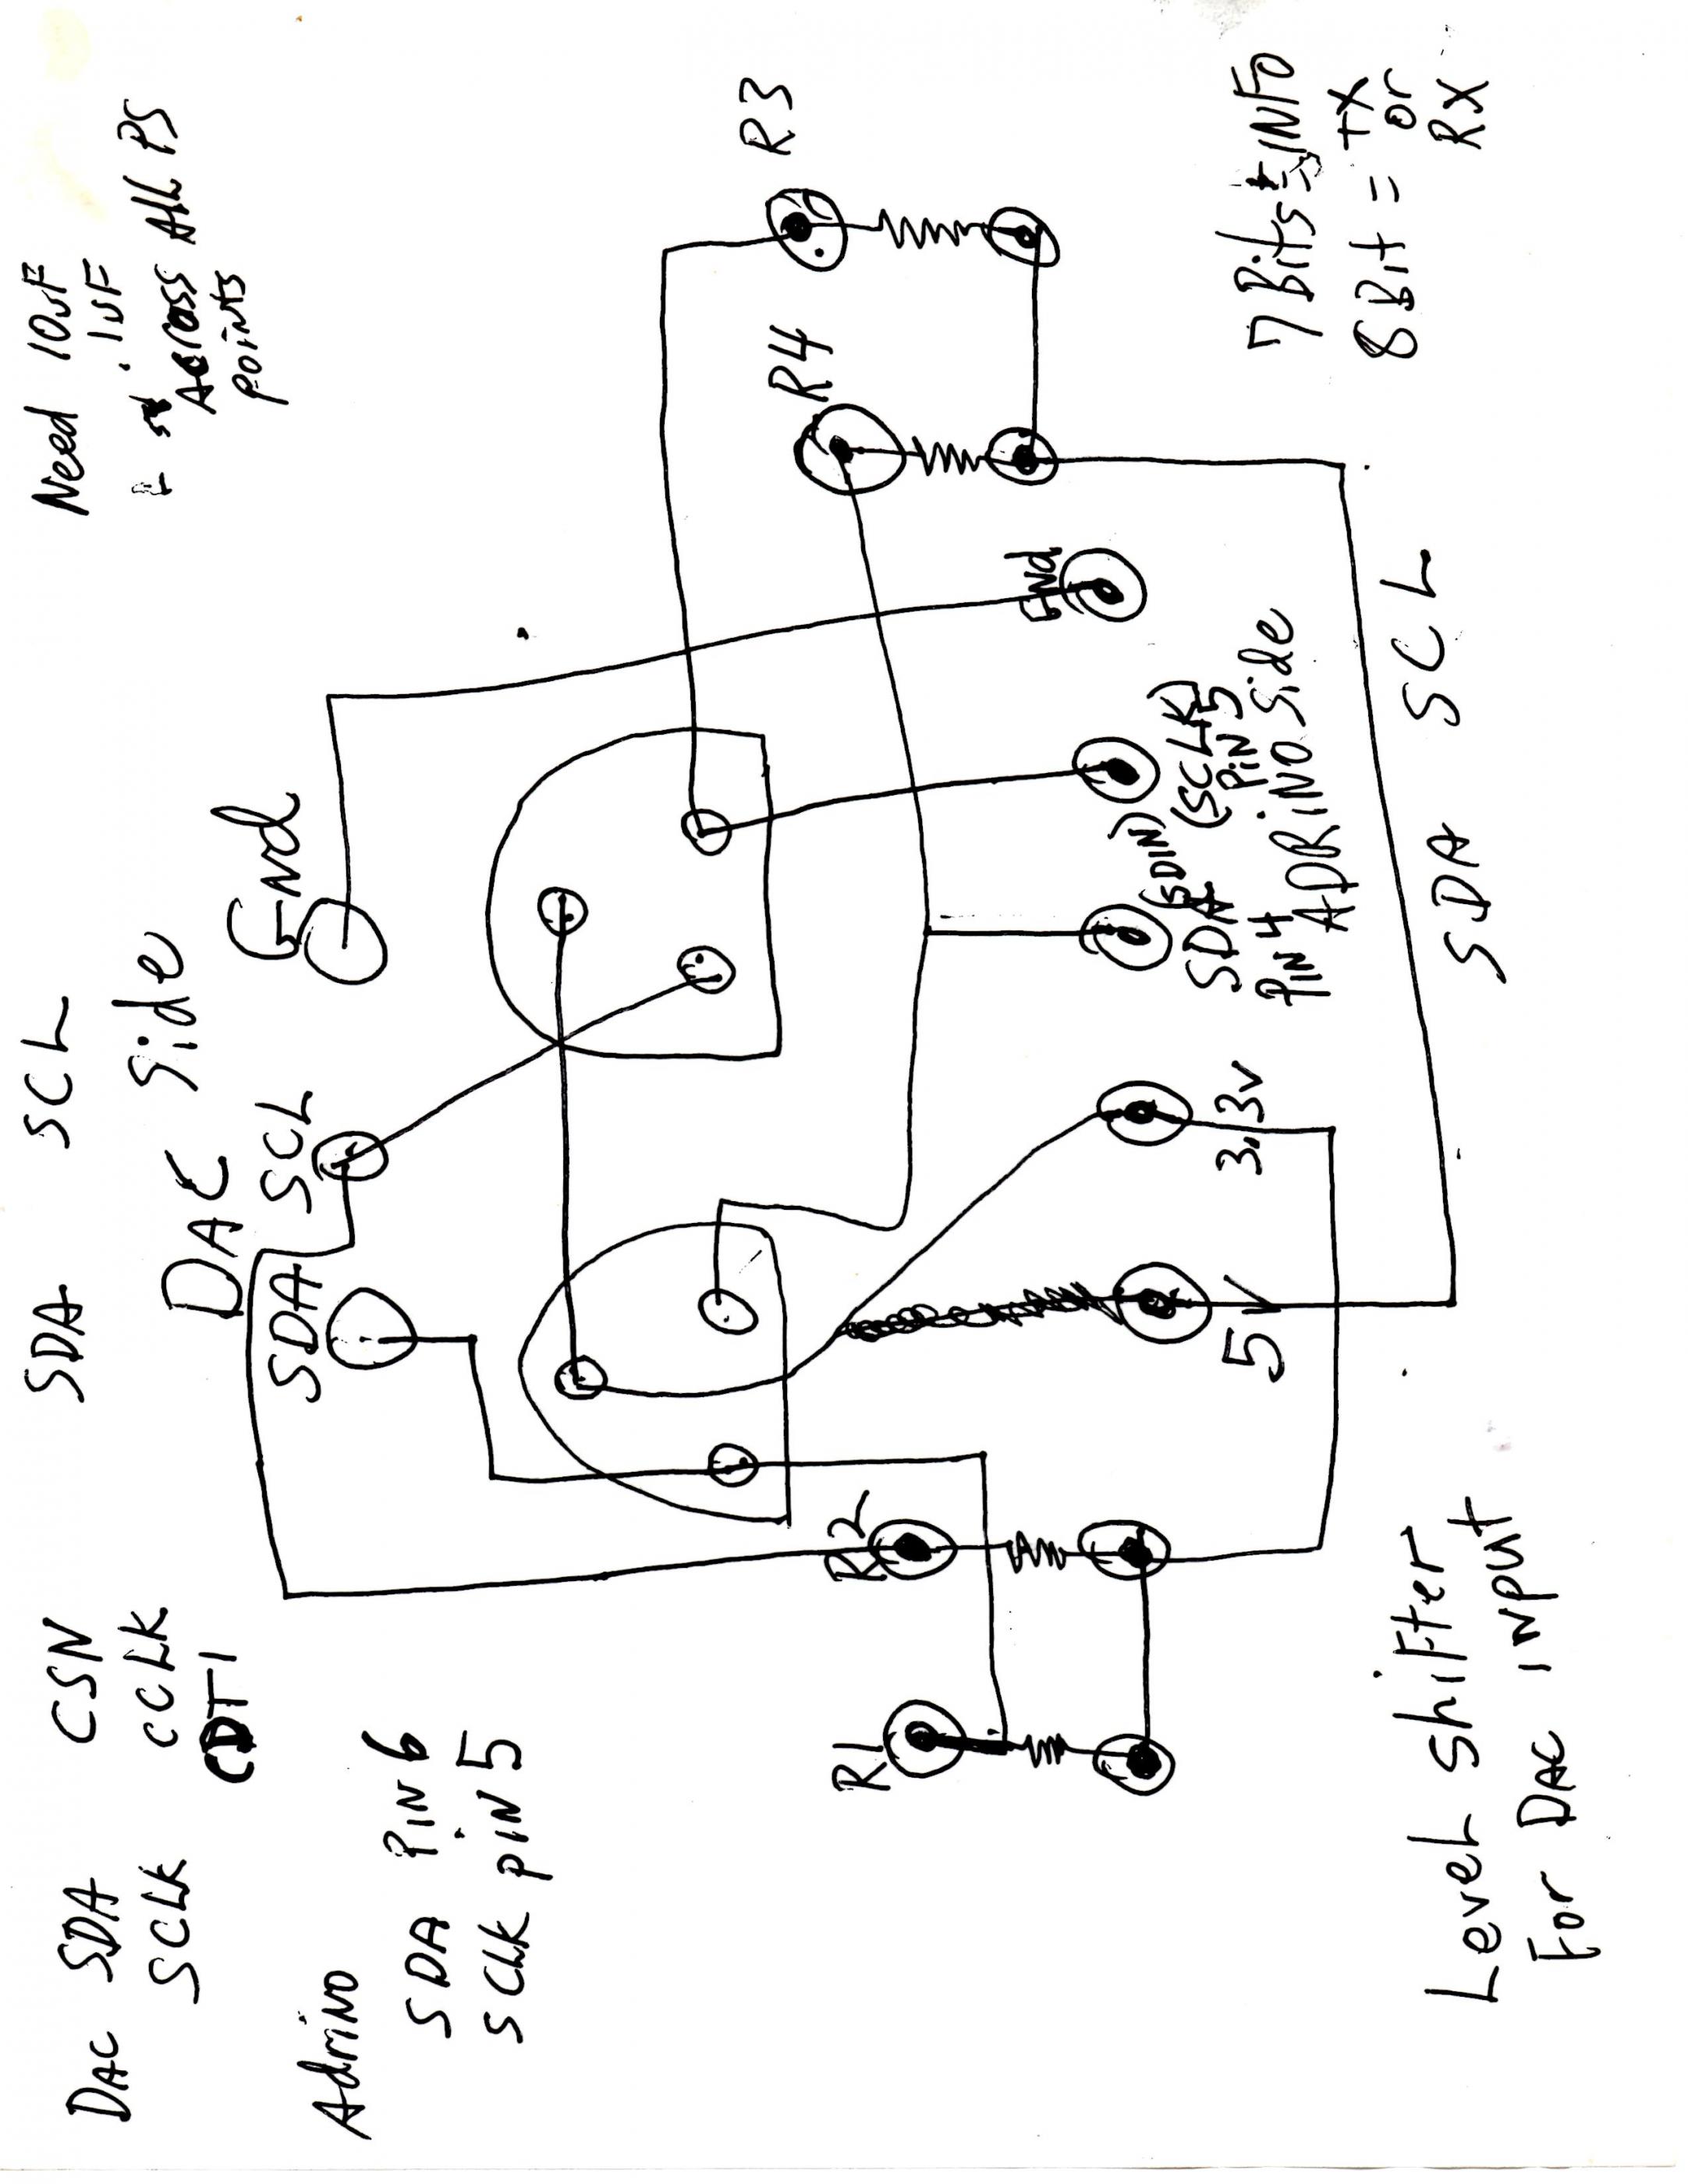 DAC SDA CSN SDA SCL Need 10uF
SCLK CCLK .1uF
CDTI Across ALL PS
points
DAC Side
Adrino
SDA PiN 6
SCLK piN 5
SDA SCL Gnd
R1
R2
R4
R3
5V
3.3v
SDA (SDIN)
PiN 4
(SCLK)
PiN 5
ADRiNO Side
Gnd
7 Bits = INFO
8 Bit = TX
or
RX
SDA SCL
Level Shifter
For DAC iNput